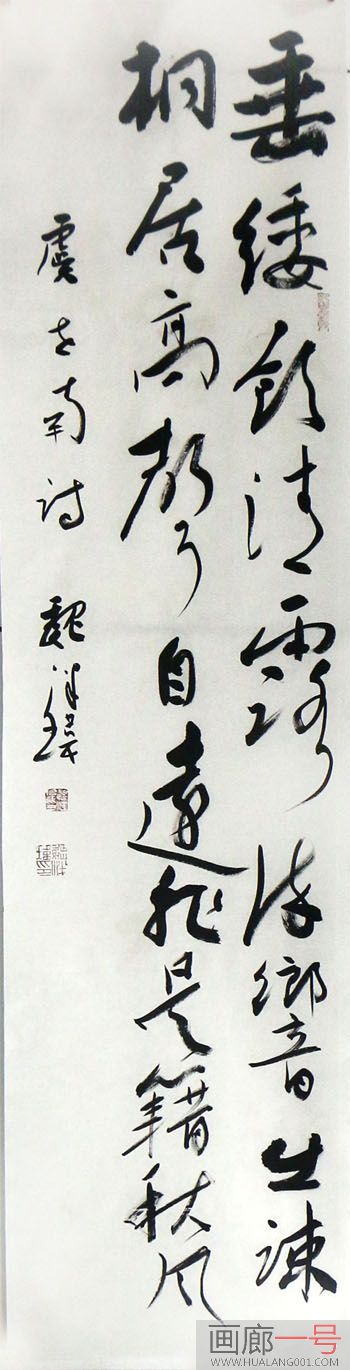 垂緌飲清露流響出疎
桐居高聲自遠非是籍秋風
虞世南詩 魏
画廊一号
WWW.HUALANG001.COM